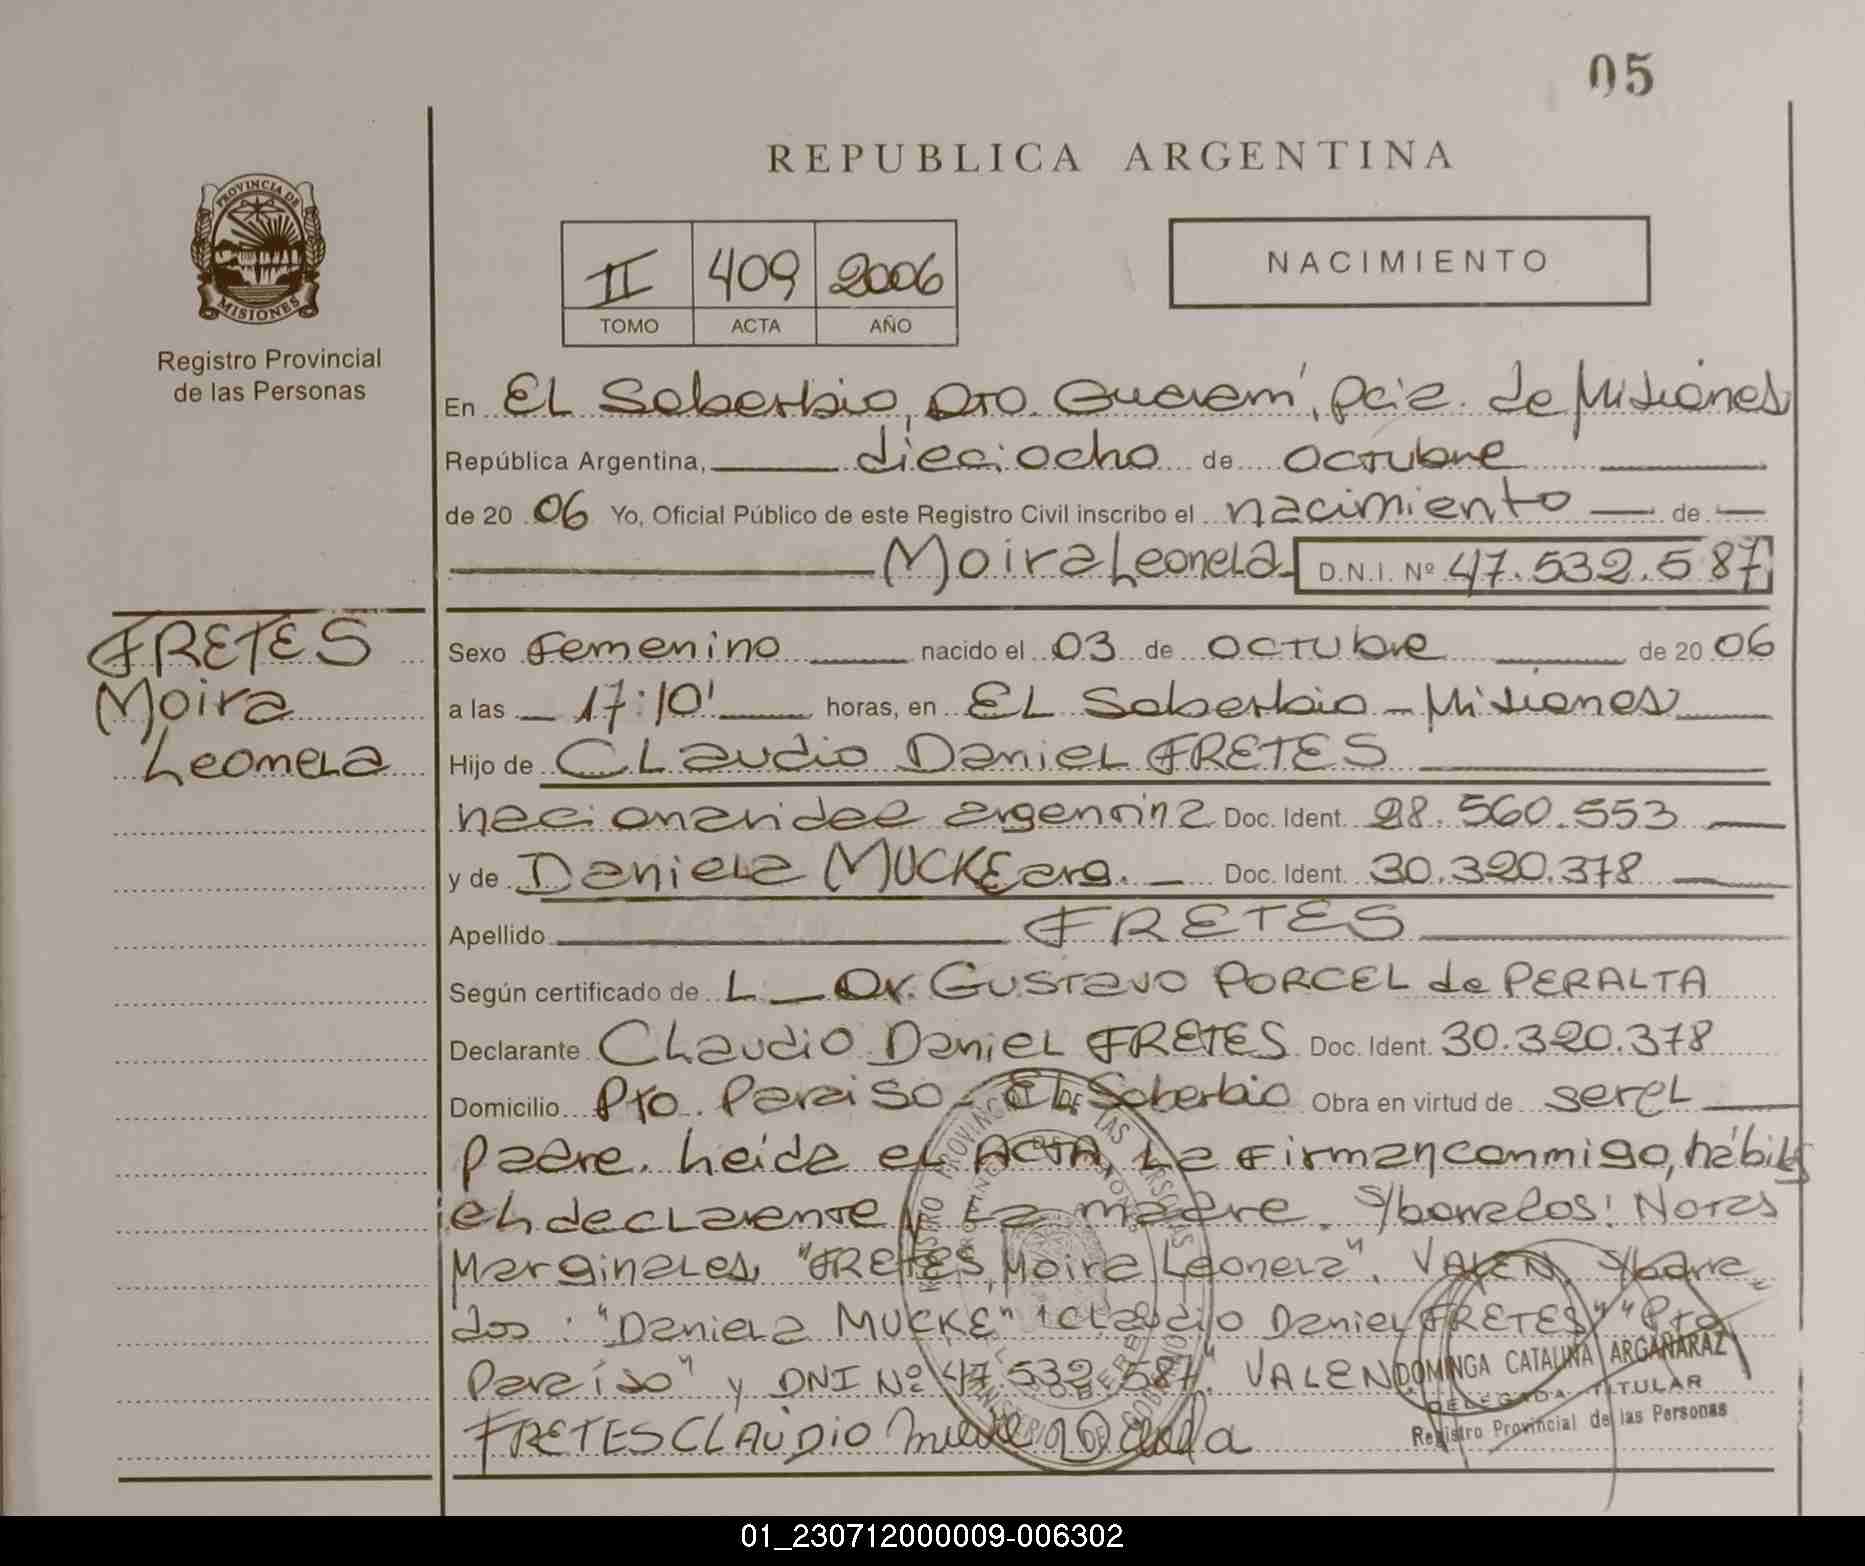 05
REPUBLICA ARGENTINA
PROVINCIA DE
MISIONES
Registro Provincial
de las Personas
II 409 2006
TOMO ACTA AÑO
NACIMIENTO
En EL Soberbio, Dto. Guaraní, Pcia. de Misiones
República Argentina, dieciocho de octubre
de 2006 Yo, Oficial Público de este Registro Civil inscribo el nacimiento de
Moira Leonela D.N.I. Nº 47.532.587
FRETES
Moira
Leonela
Sexo Femenino nacido el 03 de octubre de 2006
a las 17:10' horas, en EL Soberbio - Misiones
Hijo de CLaudio Daniel FRETES
nacionalidad argentina Doc. Ident. 28.560.553
y de Daniela MUCKE arg. Doc. Ident. 30.320.378
Apellido FRETES
Según certificado de L Dr. Gustavo PORCEL de PERALTA
Declarante CLaudio Daniel FRETES Doc. Ident. 30.320.378
Domicilio Pto. Paraiso - EL Soberbio Obra en virtud de ser el
padre. Leida el ACTA, La Firman conmigo, hábiles
el declarante y La madre. S/borrados: Notas
Marginales, "FRETES, Moira Leonela". VALEN. S/borra
dos: "Daniela MUCKE" "Claudio Daniel FRETES" "Pto
Paraiso" y DNI Nº 47.532.587". VALEN.
FRETES CLAUDIO
DOMINGA CATALINA ARGAÑARAZ
DELEGADA TITULAR
Registro Provincial de las Personas
01_230712000009-006302